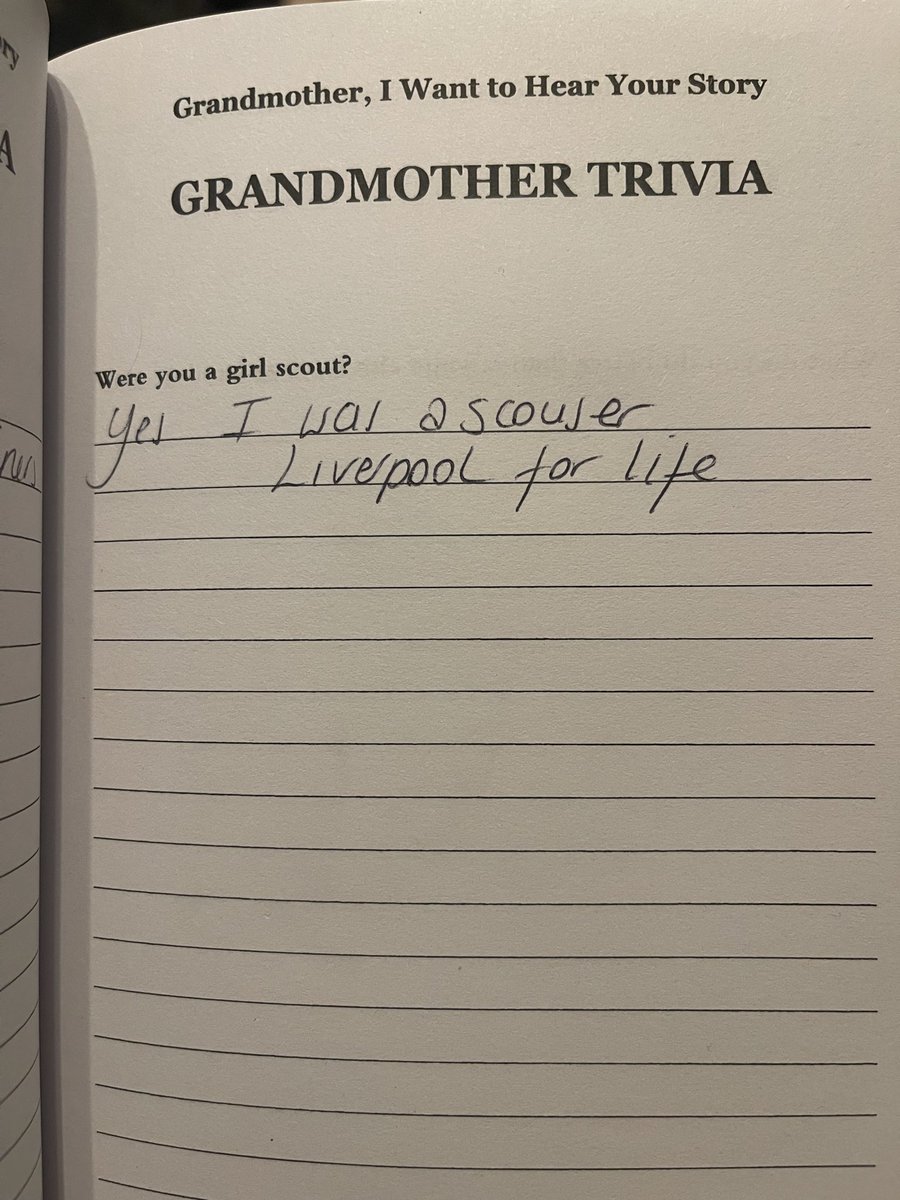 ry
A
Grandmother, I Want to Hear Your Story
GRANDMOTHER TRIVIA
Were you a girl scout?
Yes I was a scouser
Liverpool for life